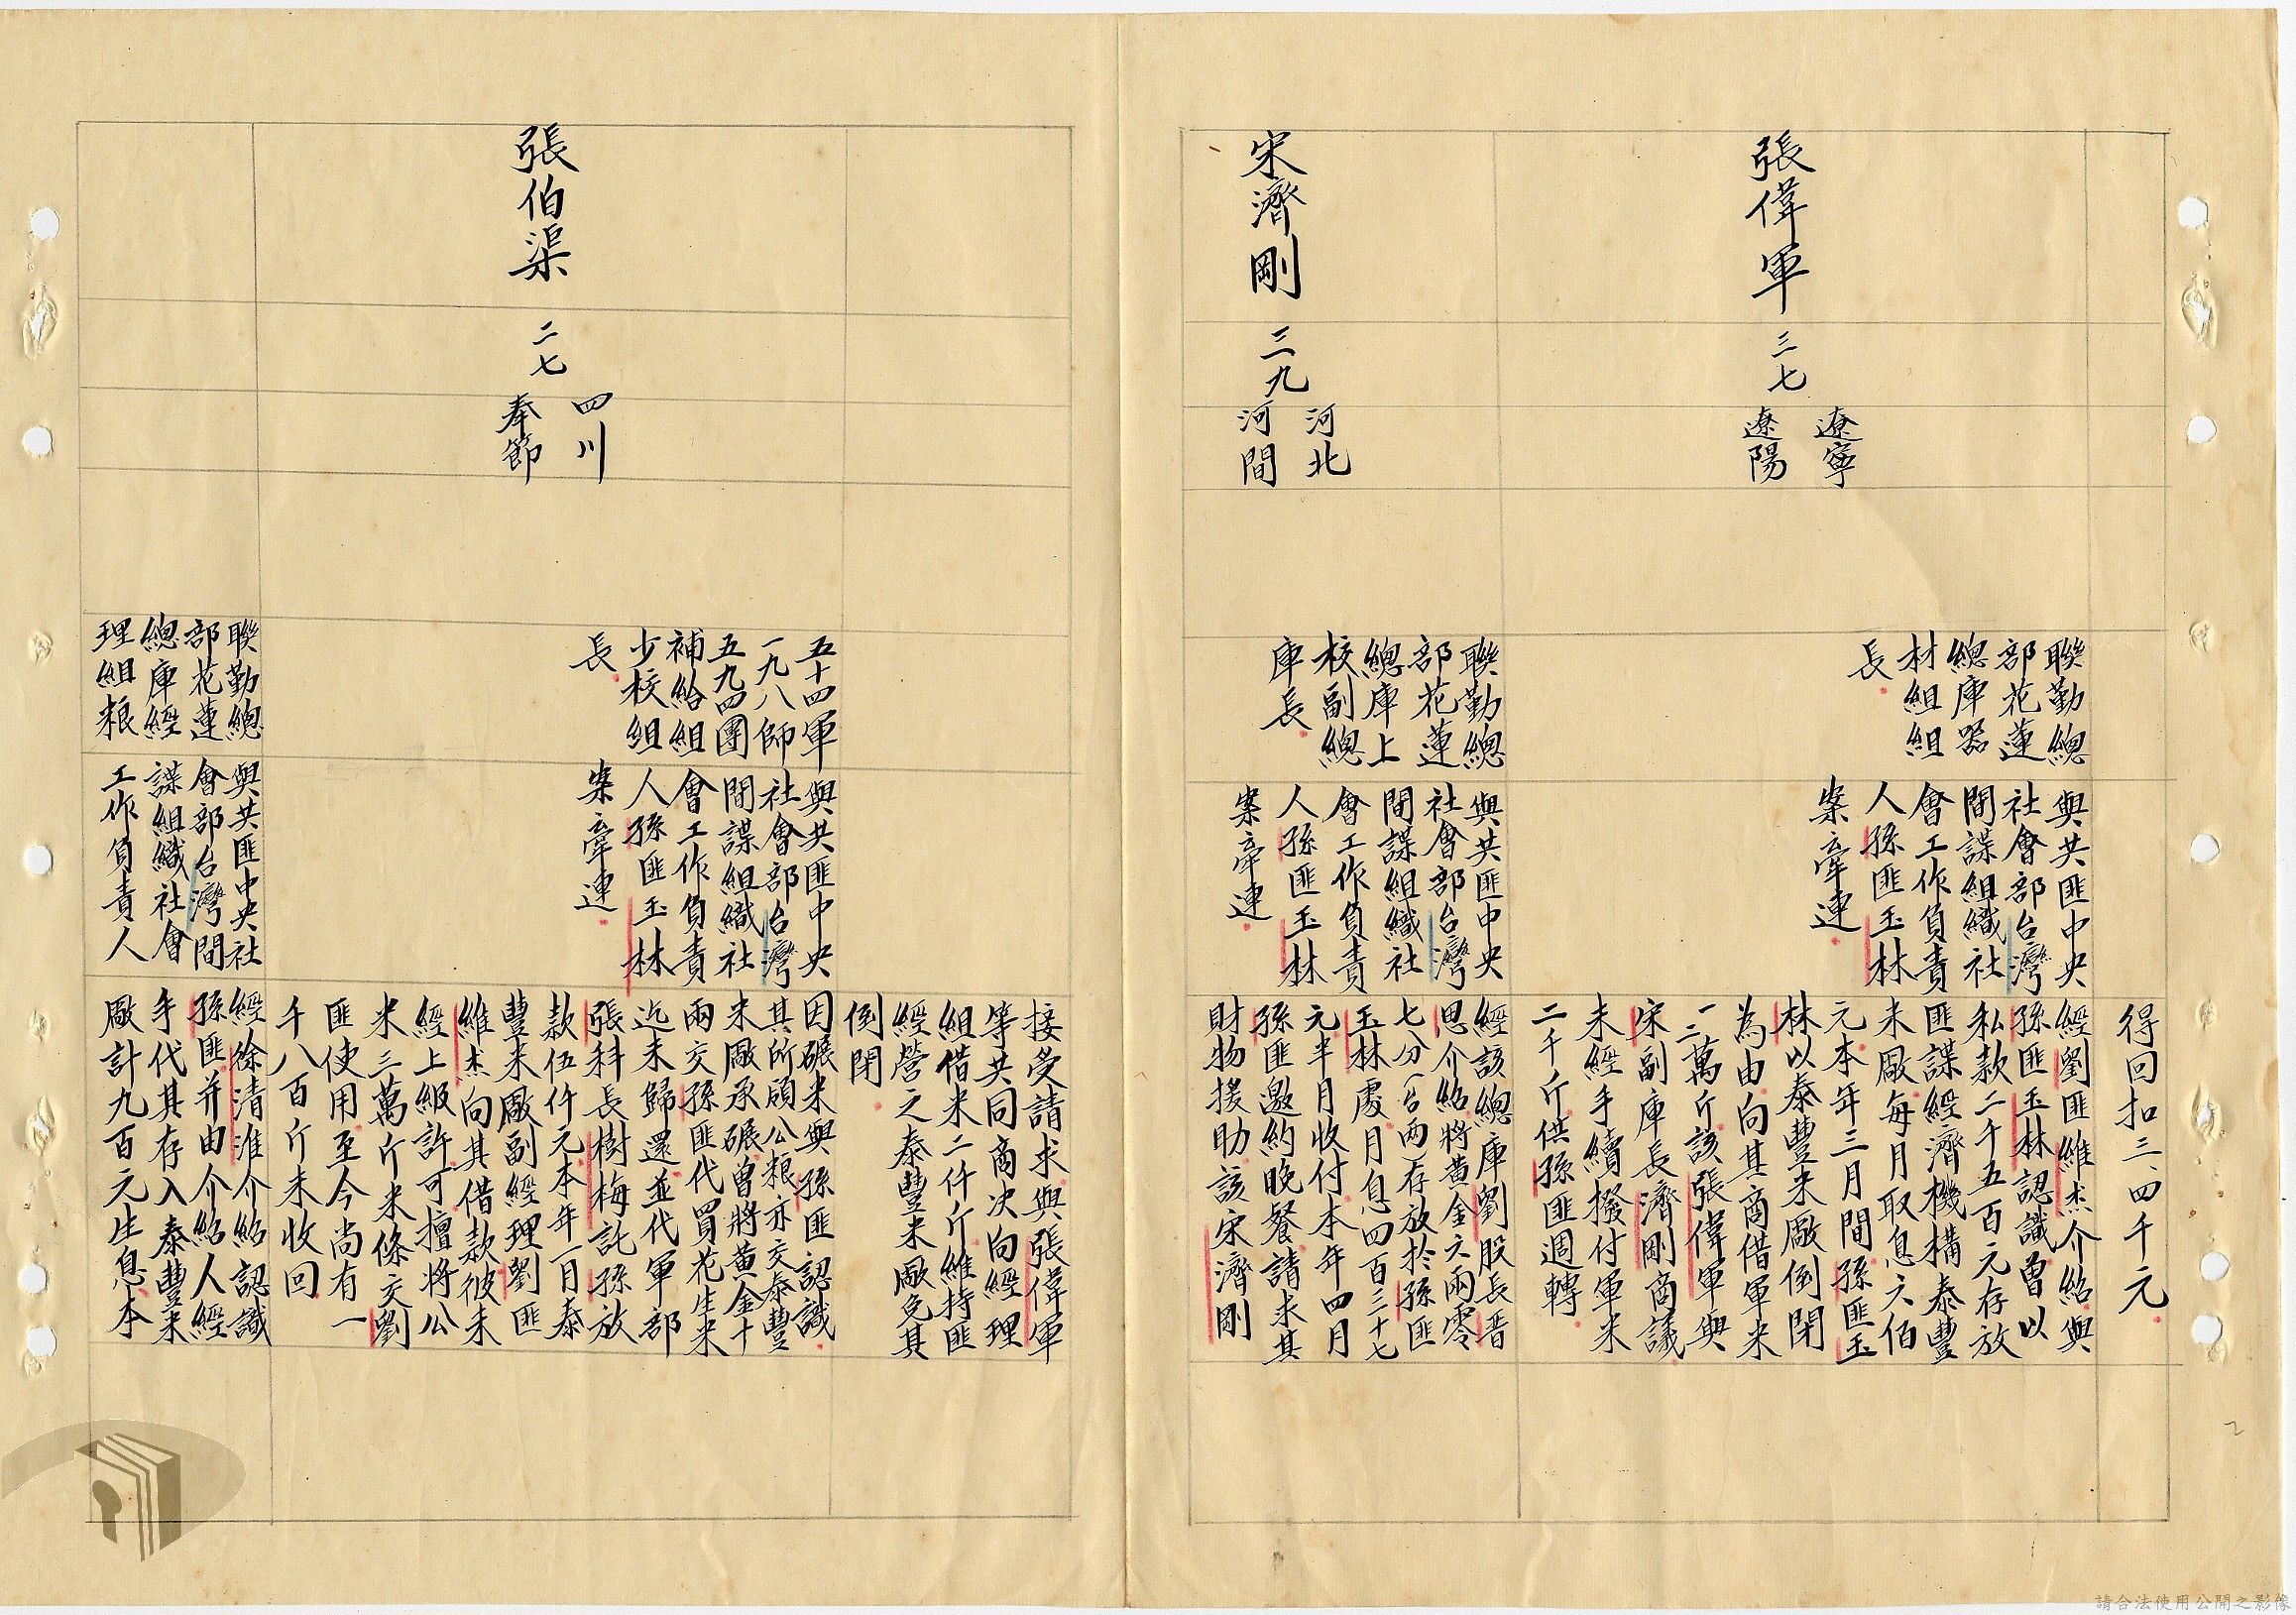 得回扣三、四千元.
張偉軍
三七
遼寧
遼陽
聯勤總
部花蓮
總庫器
材組組
長.
與共匪中央
社會部台灣
間諜組織社
會工作負責
人孫匪玉林
案牽連.
經劉匪維杰介紹與
孫匪玉林認識曾以
私款二千五百元存放
匪諜經濟機構泰豐
米廠每月取息六佰
元本年三月間孫匪玉
林以泰豐米廠倒閉
為由向其商借軍米
一二萬斤該張偉軍與
宋副庫長濟剛商議
未經手續撥付軍米
二千斤供孫匪週轉.
宋濟剛
三九
河北
河間
聯勤總
部花蓮
總庫上
校副總
庫長.
與共匪中央
社會部台灣
間諜組織社
會工作負責
人孫匪玉林
案牽連.
經該總庫劉股長晋
思介紹將黃金六兩零
七分(台兩)存放於孫匪
玉林處月息四百三十七
元半月收付本年四月
孫匪邀約晚餐請求其
財物援助該宋濟剛
接受請求與張偉軍
等共同商決向經理
組借米二仟斤維持匪
經營之泰豐米廠免其
倒閉.
張伯渠
二七
四川
奉節
五十四軍
一九八師
五九四團
補給組
少校組
長.
與共匪中央
社會部台灣
間諜組織社
會工作負責
人孫匪玉林
案牽連.
因碾米與孫匪認識.
其所領公粮亦交泰豐
米廠承碾曾將黃金十
兩交孫匪代買花生米
迄未歸還並代軍部
張科長樹梅託孫放
款伍仟元本年一月泰
豐米廠副經理劉匪
維杰向其借款彼未
經上級許可擅將公
米三萬斤米條交劉
匪使用至今尚有一
千八百斤未收回
聯勤總
部花蓮
總庫經
理組粮
與共匪中央社
會部台灣間
諜組織社會
工作負責人
經徐清淮介紹認識
孫匪并由介紹人經
手代其存入泰豐米
廠計九百元生息.本
2
請合法使用公開之影像